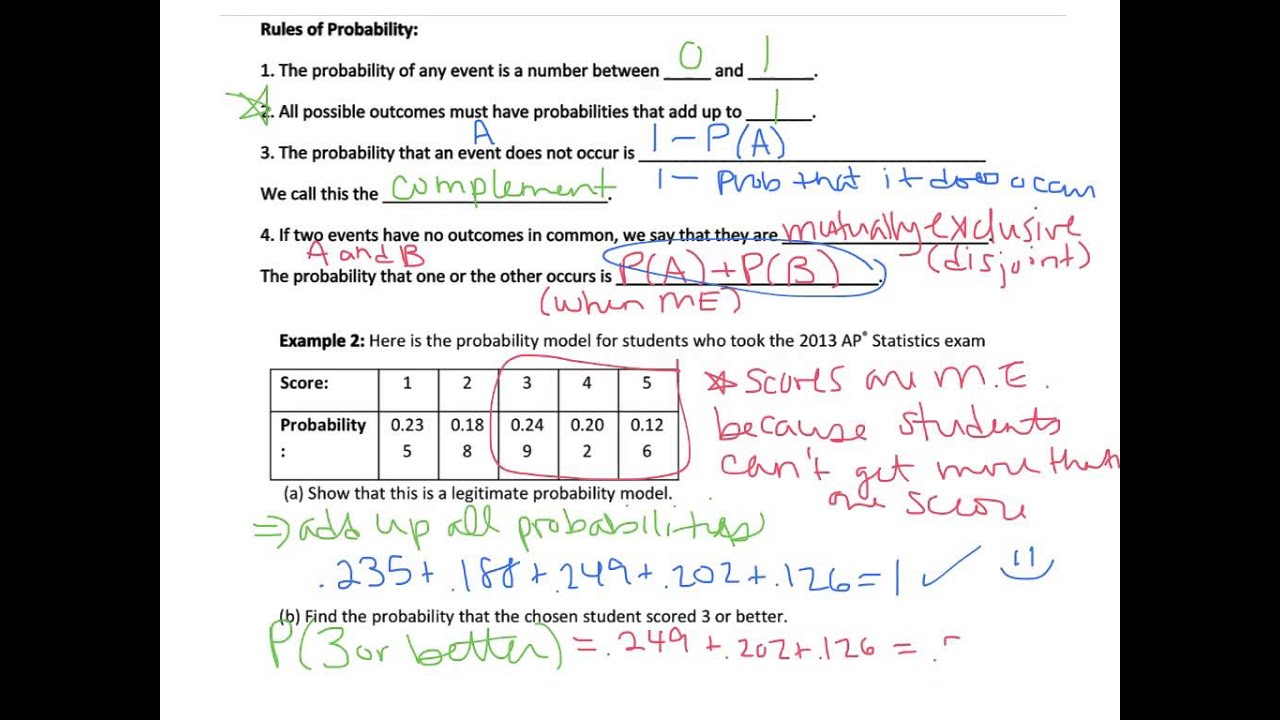 Rules of Probability:
1. The probability of any event is a number between 0 and 1.
2. All possible outcomes must have probabilities that add up to 1.
A
3. The probability that an event does not occur is 1 - P(A)
1 - prob that it does occur
We call this the complement.
4. If two events have no outcomes in common, we say that they are mutually exclusive
A and B (disjoint)
The probability that one or the other occurs is P(A) + P(B).
(when ME)
Example 2: Here is the probability model for students who took the 2013 AP® Statistics exam
Score: 1 2 3 4 5
Probability 0.23 0.18 0.24 0.20 0.12
: 5 8 9 2 6
* Scores are M.E.
because students
can't get more than
one score
(a) Show that this is a legitimate probability model.
⇒ add up all probabilities
.235 + .188 + .249 + .202 + .126 = 1 ✓
(b) Find the probability that the chosen student scored 3 or better.
P(3 or better) = .249 + .202 + .126 = .